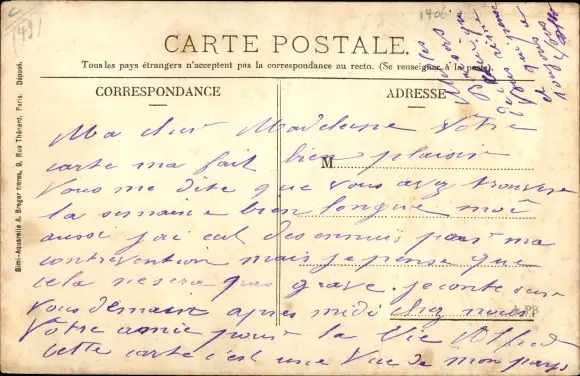 CARTE POSTALE.
Tous les pays étrangers n'acceptent pas la correspondance au recto. (Se renseigner à la poste).
CORRESPONDANCE
ADRESSE
M
Ma cher Madeleine Votre
carte ma fait bien plaisir
Vous me dite que vous avez trouver
la semaine bien longue moi
aussi jai eut des ennuis pour ma
contrevention mais je pense que
cela ne sera pas grave. je conte sur
vous demain apres midi chez nous
Votre amie pour la Vie
Cette carte c'est une Vue de mon pays
Semi-Aquarelle A. Breger frères, 9, Rue Thénard, Paris. Déposé.